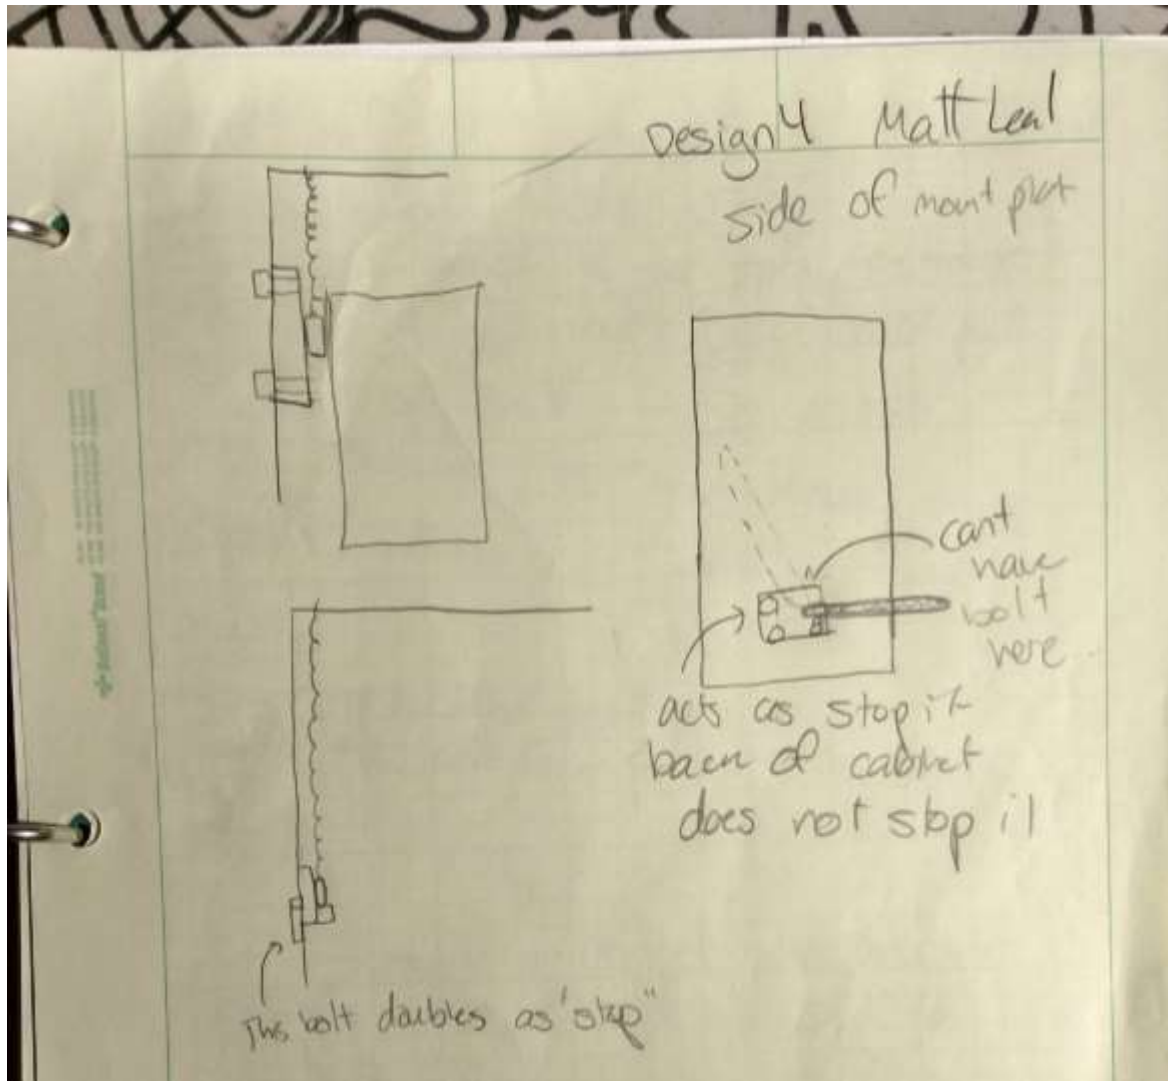 Design 4 Matt Leal
side of mount plat
cant
have
bolt
here
acts as stop if
back of cabinet
does not stop it
This bolt doubles as "stop"